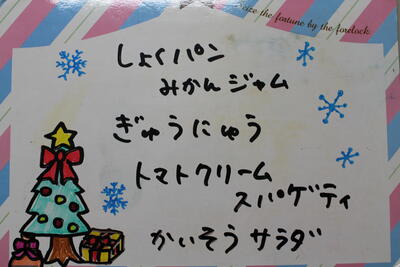 seize the fortune by the forelock
しょくパン
みかんジャム
ぎゅうにゅう
トマトクリーム
スパゲティ
かいそうサラダ